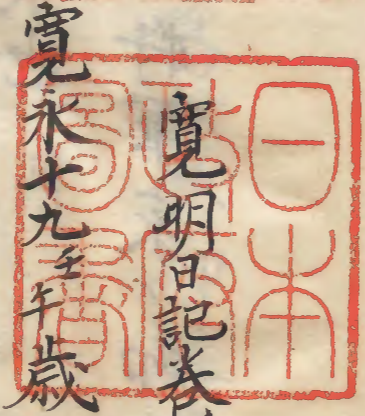 寛明日記巻
寛永十九壬午歳
日本
政府
圖書